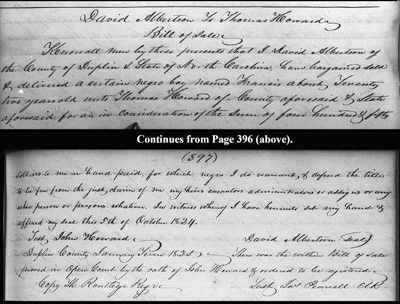 David Albertson To Thomas Howard
Bill of Sale
Know all men by these presents that I David Albertson of
the County of Duplin & State of North Carolina have bargained sold
& delivered a certain negro boy named Francis about Twenty
two years old unto Thomas Howard of County aforesaid & State
aforesaid for an in consideration of the Sum of four hundred & fifty
Continues from Page 396 (above).
(397)
dollars to me in hand paid, for which negro I do warrant & defend the title
to be free from the just claim of me my heirs executors administrators or assigns or any
other person or persons whatever. In witness whereof I have hereunto set my hand &
affixed my seal this 5th of October 1824.
Test John Howard David Albertson Seal
Duplin County January Term 1825 Then was the within Bill of Sale
proved in Open Court by the oath of John Howard & ordered to be registered.
Copy Th Routledge Regr Test Jas Pearsall Clk